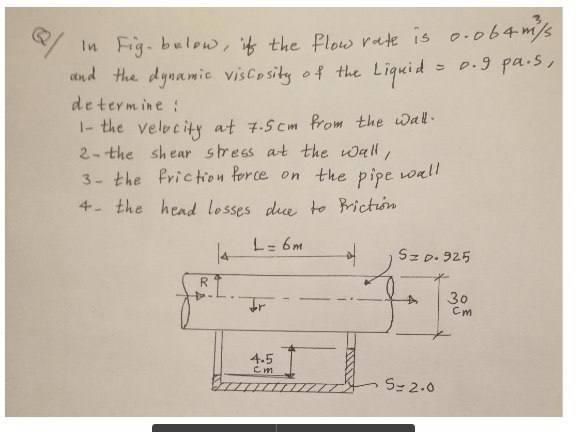 Q/ In Fig. below, if the flow rate is 0.064 m³/s
and the dynamic viscosity of the Liquid = 0.9 pa.s,
determine :
1- the velocity at 7.5 cm from the wall.
2- the shear stress at the wall,
3- the friction force on the pipe wall
4- the head losses due to friction
L = 6m
S = 0.925
R
r
30
cm
4.5
cm
S = 2.0